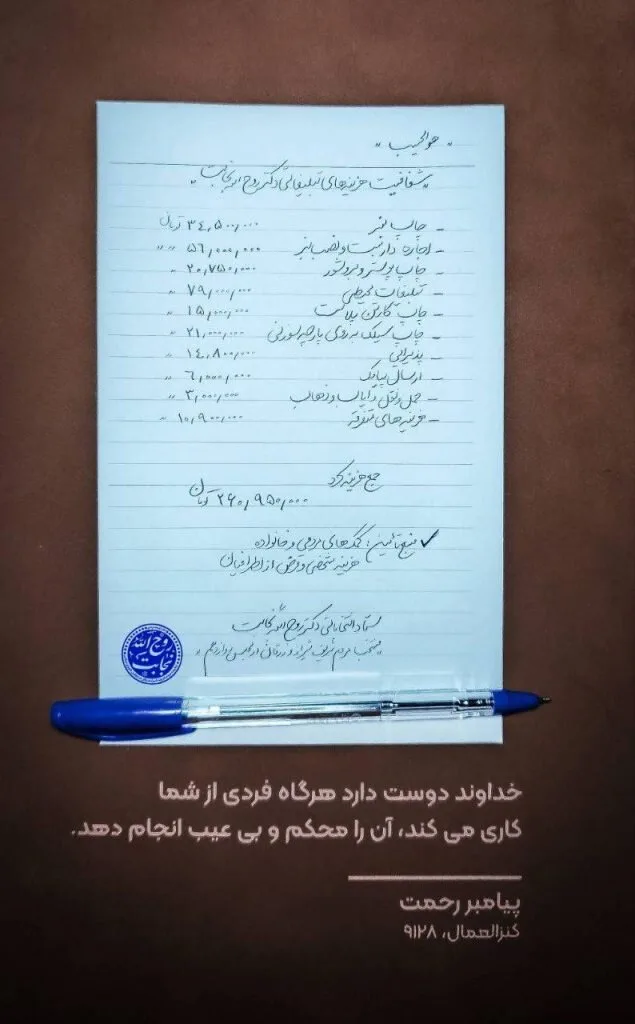 " هوالحبیب "
" شفافیت هزینه‌های تبلیغاتی دکتر روح اله نجابت "
- چاپ بنر ۳۴,۵۰۰,۰۰۰ ریال
- اجاره داربست و نصب بنر ۵۶,۰۰۰,۰۰۰ " "
- چاپ پوستر و بروشور ۲۰,۷۵۰,۰۰۰ "
- تبلیغات محیطی ۷۹,۰۰۰,۰۰۰ "
- چاپ کارتن پلاست ۱۵,۰۰۰,۰۰۰ "
- چاپ سیلک به روی پارچه سوزنی ۲۱,۰۰۰,۰۰۰ "
- پذیرایی ۱۴,۸۰۰,۰۰۰ "
- ارسال پیامک ۶,۰۰۰,۰۰۰ "
- حمل و نقل و ایاب و ذهاب ۳,۰۰۰,۰۰۰ "
- هزینه های متفرقه ۱۰,۹۰۰,۰۰۰ "
جمع هزینه کرد
۲۶۰,۹۵۰,۰۰۰
✓ منبع تأمین: کمک‌های مردمی و خانواده
هزینه شخصی و قرض از اطرافیان
ستاد انتخاباتی دکتر روح اله نجابت
منتخب مردم شریف شیراز و زرقان در مجلس یازدهم "
روح الله
نجابت
خداوند دوست دارد هرگاه فردی از شما
کاری می کند، آن را محکم و بی عیب انجام دهد.
پیامبر رحمت
کنزالعمال، ۹۱۲۸